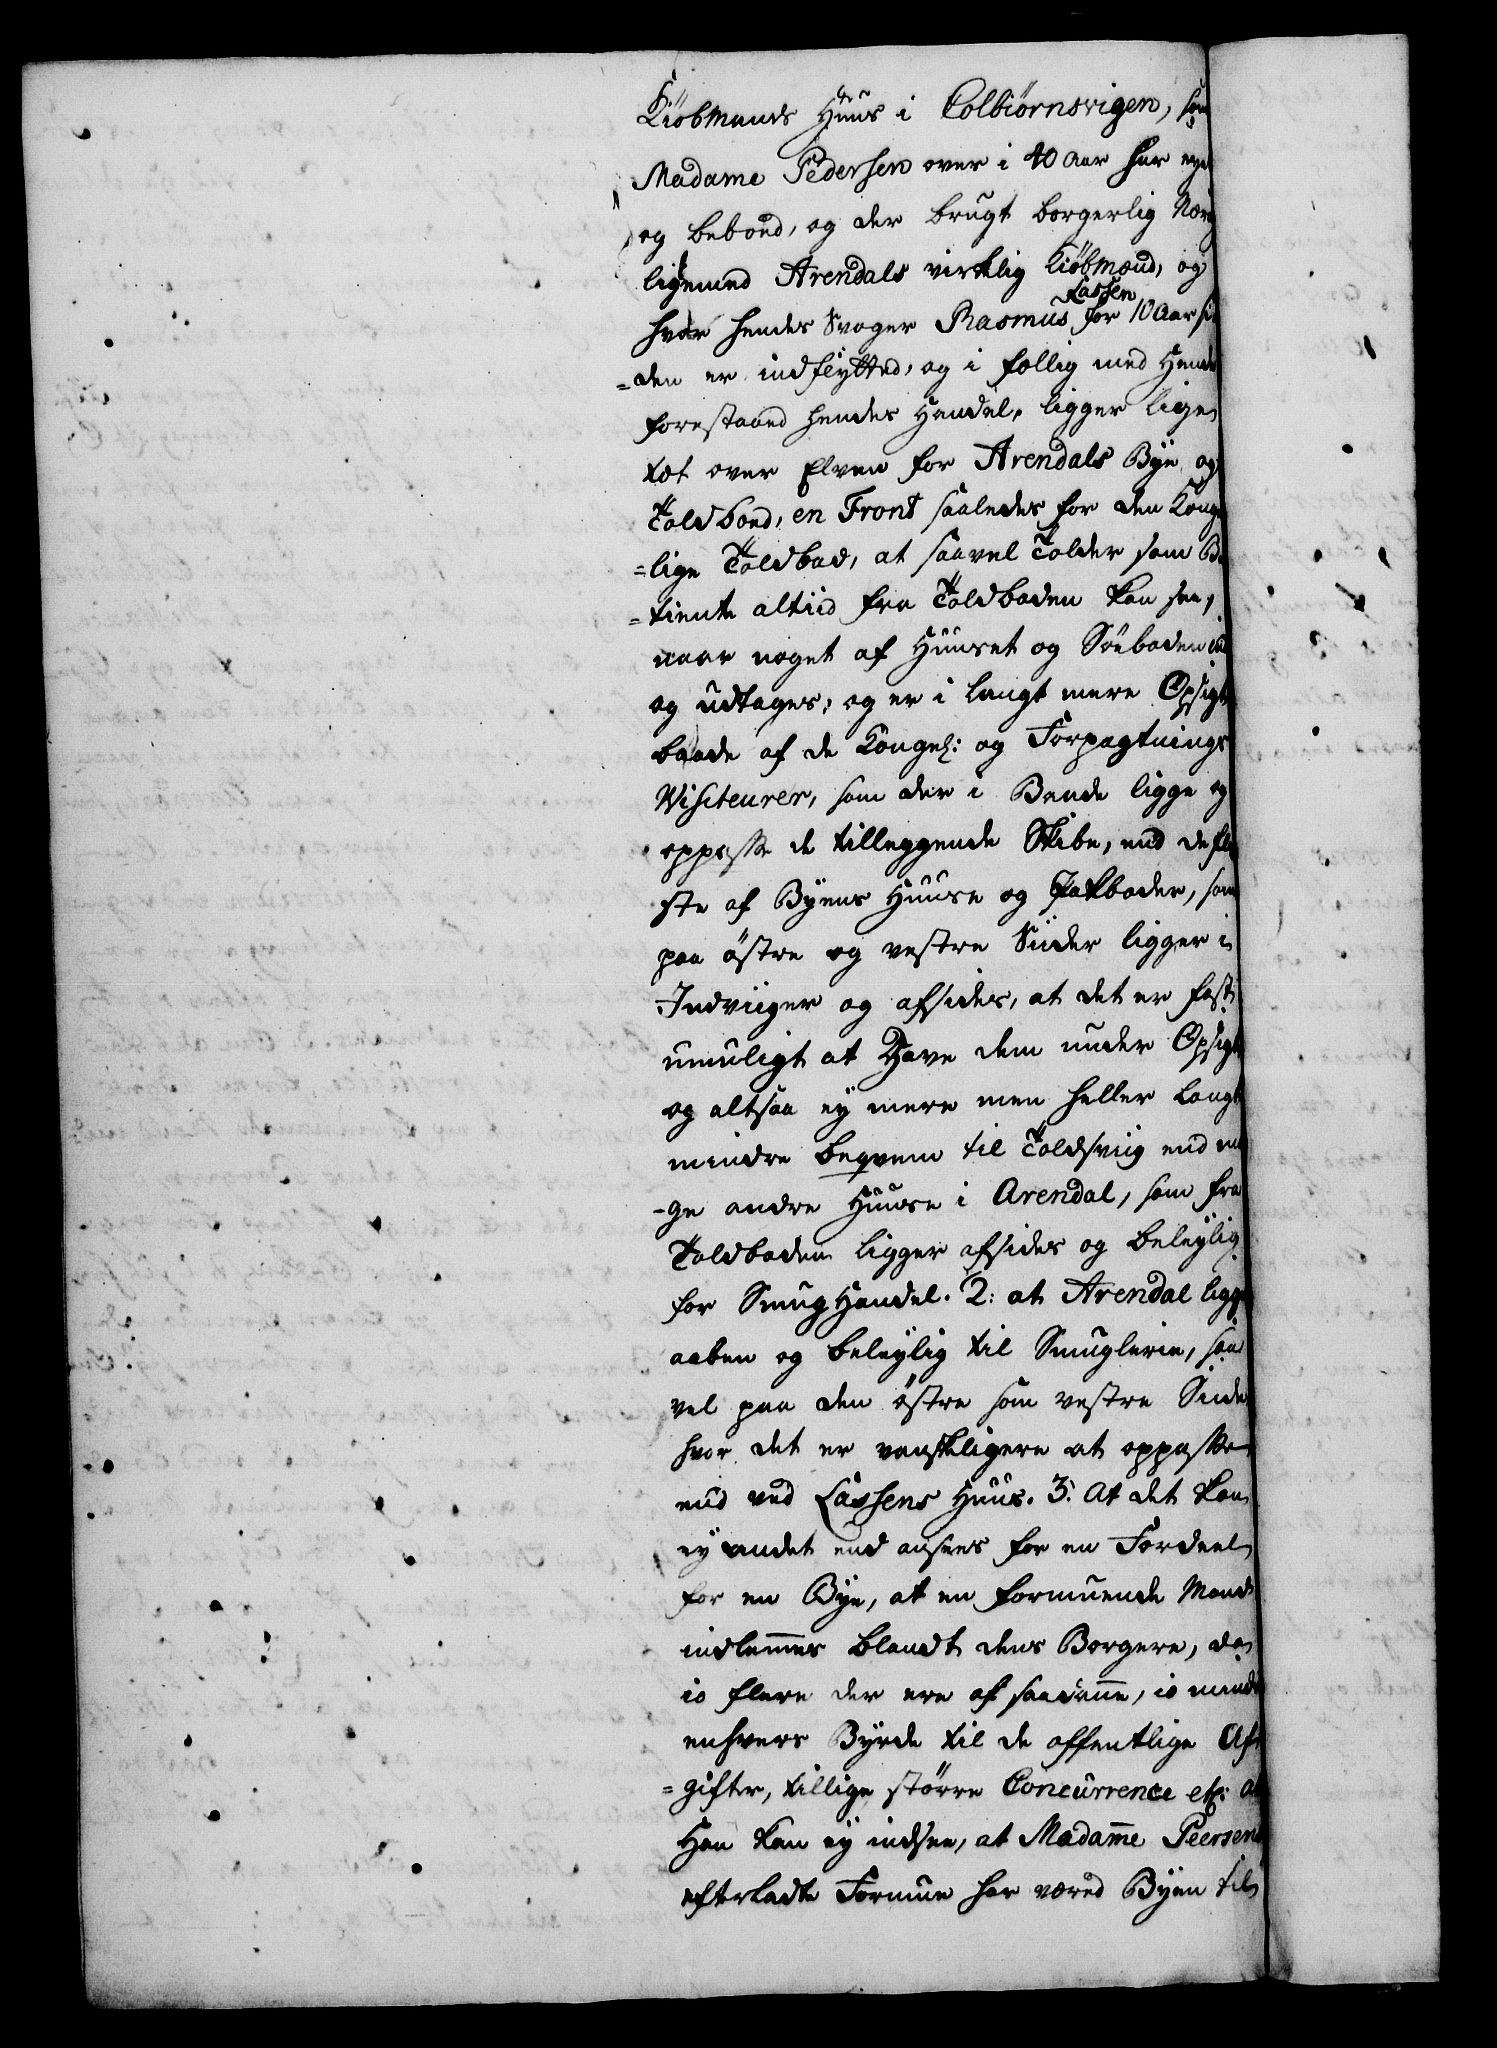 Kiøbmands Huus i Colbiørnsvigen, som
Madame Pedersen over i 40 aar har eye
og beboed, og der brugt borgerlig Nær
ligemed Arendals virkelig Kiøbmænd, og
hvor hendes Svoger Rasmus Lassen for 10 Aar si
=den er indflytted, og i følig med Hende
forestaaed hendes Handel, ligger lige
tæt over Elven for Arendals Bye og
Toldboed, en Front saaledes for den Konge
=lige Toldbod, at saavel Tolder som Be
=tiente altiid fra Toldboden kan see,
naar noget af Huuset og Søeboden ind
og udtages, og er i langt mere Opsigt
baade af de Kongel: og Forpagtnings
Visiteurer, som der i Bande ligge og
oppasse de tilleggende Skibe, end de fle
ste af Byens Huuse og Pakboder, som
paa østre og vestre Siider ligger i
Indviiger og afsides, at det er fast
umuligt at Have dem under Opsigt
og altsaa ey mere men heller langt
mindre beqvem til Toldsviig end no
-ge andre Huuse i Arendal, som fra
Toldboden ligger afsides og beleylig
for SmugHandel. 2: at Arendal ligge
aaben og beleylig til Smuglerie, saa
vel paa den østre som vestre Siide
hvor det er vanskeligere at oppasse
end ved Lassens Huus. 3: At det kan
ey andet end ansees for en Fordeel
for en Bye, at en formuende Mand
indlemmes blandt dens Borgere, da
io flere der ere af saadanne, io mindr
enhvers Byrde til de offentlige Af
=gifter, tillige større Concurrence etc: at
Han kan ey indsee, at Madame Peersens
efterladte Formue har været Byen til